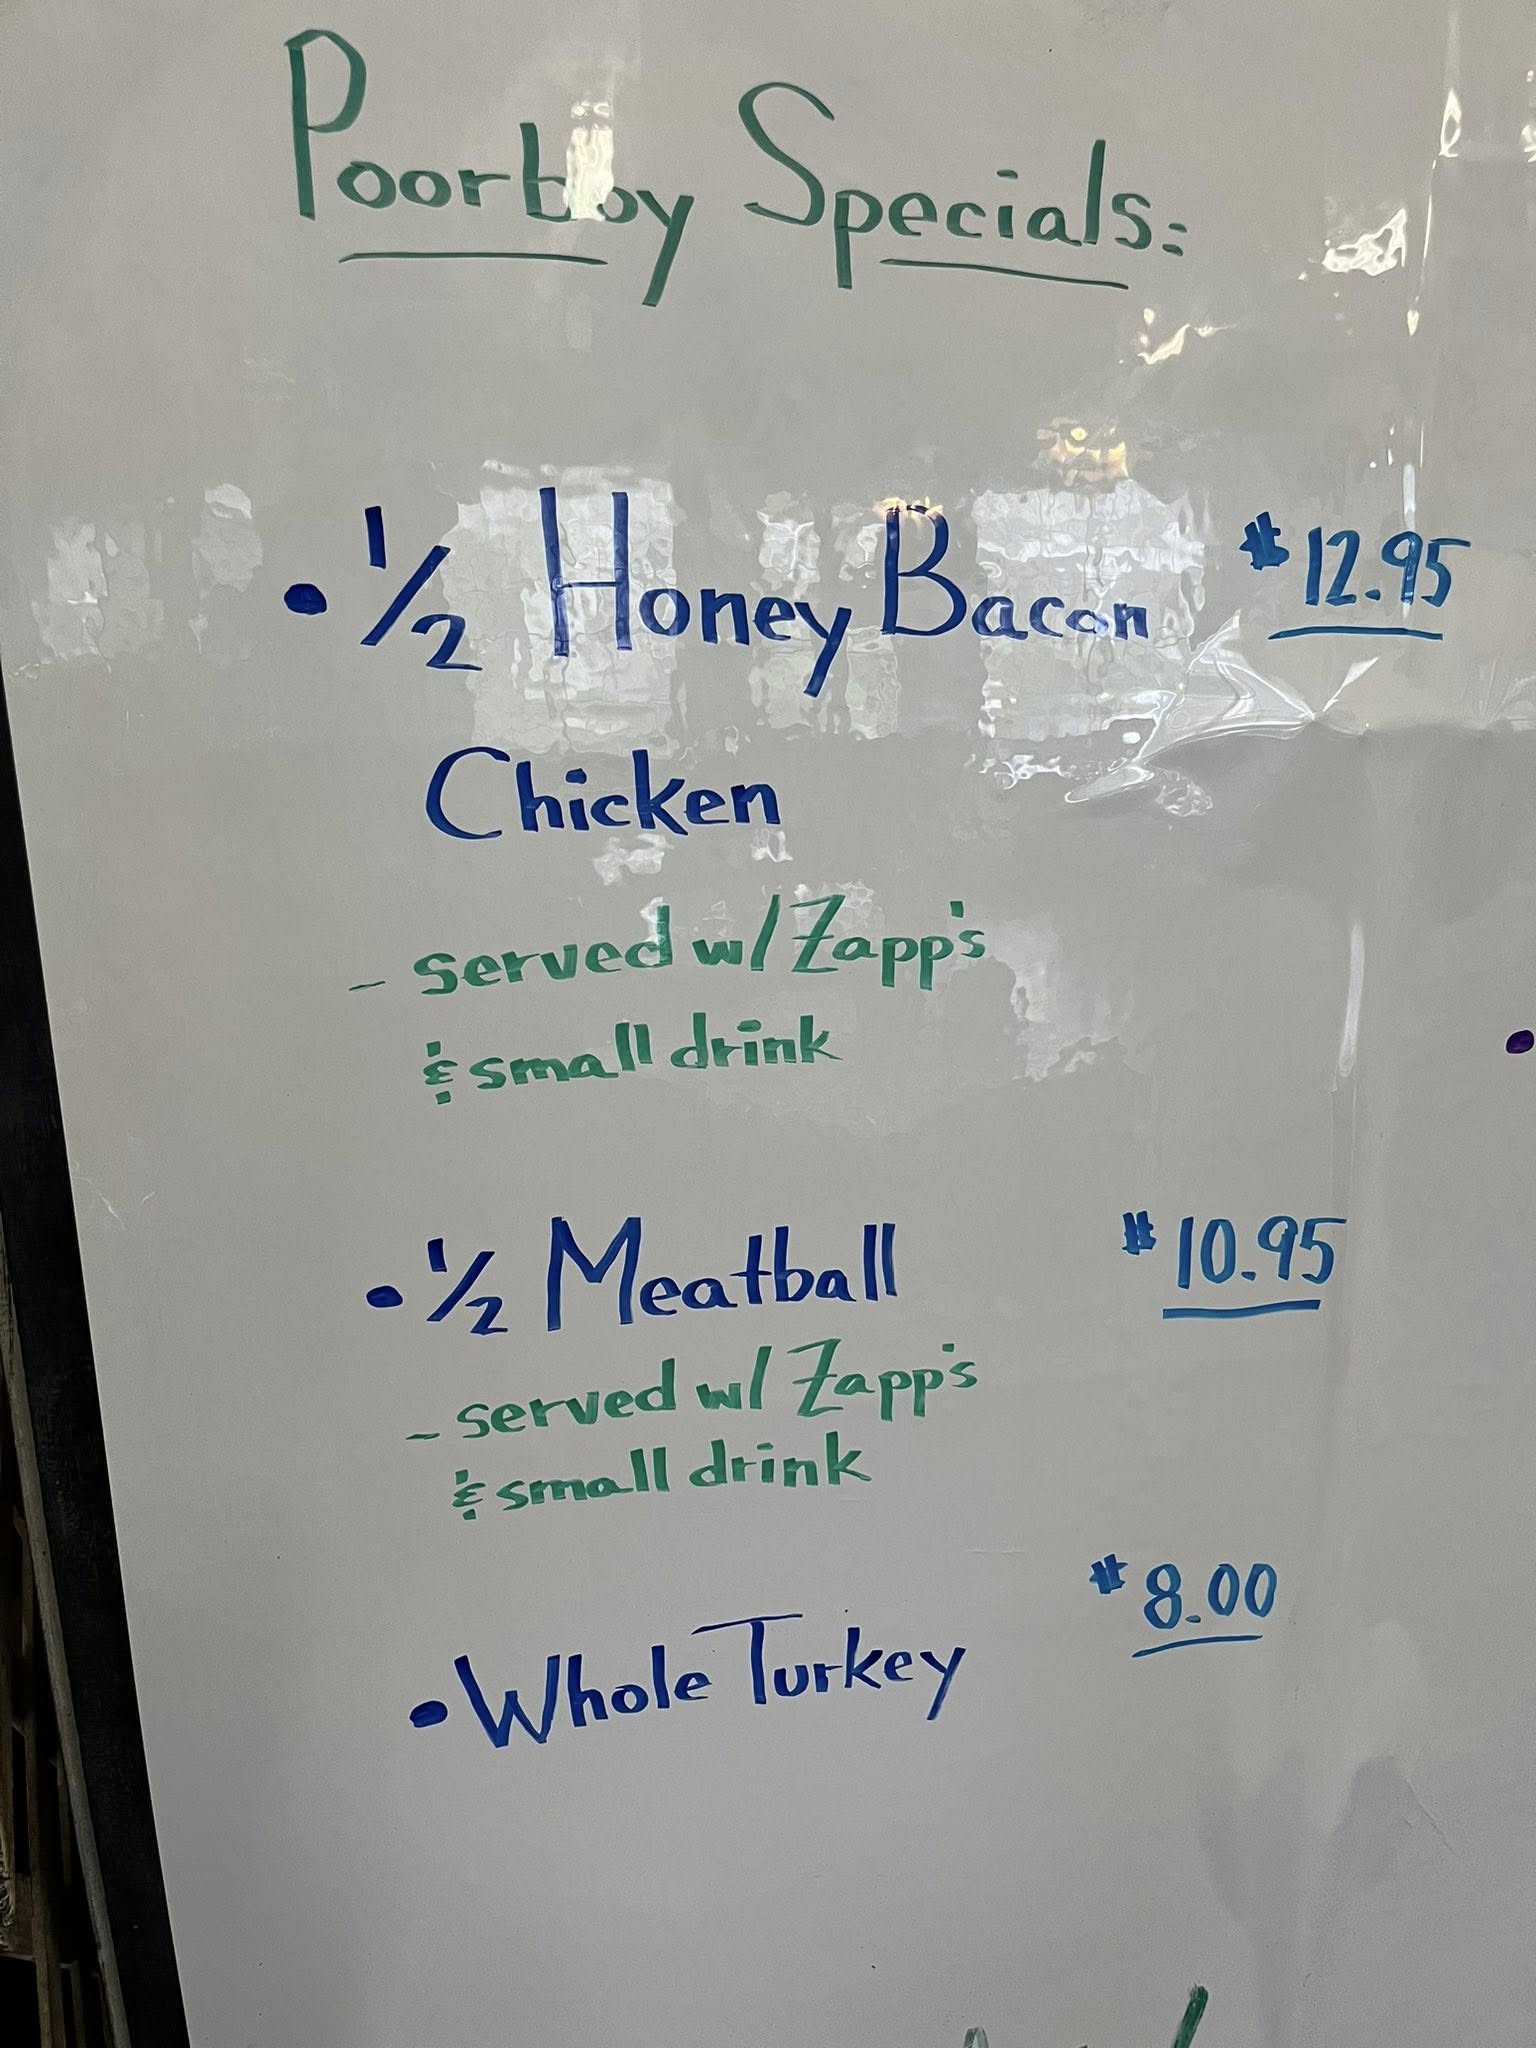 Poorboy Specials:
• 1/2 Honey Bacon $12.95
Chicken
- served w/ Zapp's
& small drink
• 1/2 Meatball $10.95
- served w/ Zapp's
& small drink
$8.00
• Whole Turkey